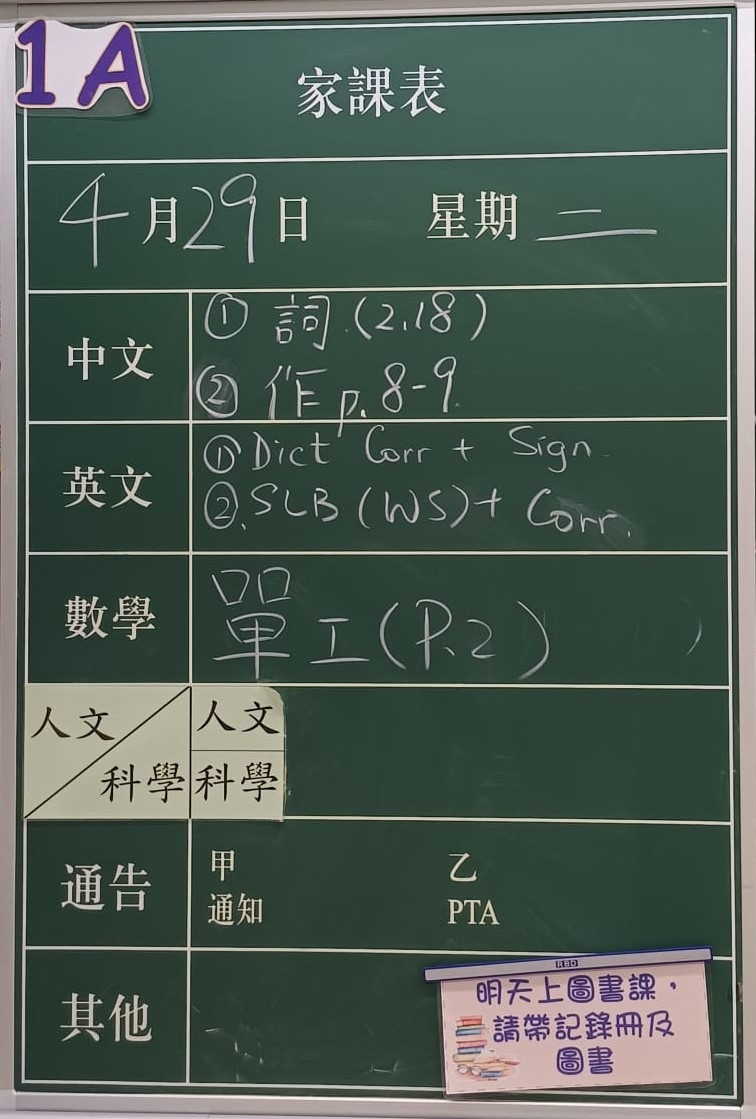 1A
家課表
4月29日 星期二
中文
① 詞.(2.18)
② 作 p.8-9
英文
① Dict Corr + Sign.
②.SLB (WS)+ Corr.
數學
單工(P.2)
人文
科學
人文
科學
通告
甲 乙
通知 PTA
其他
RBD
明天上圖書課，
請帶記錄冊及
圖書